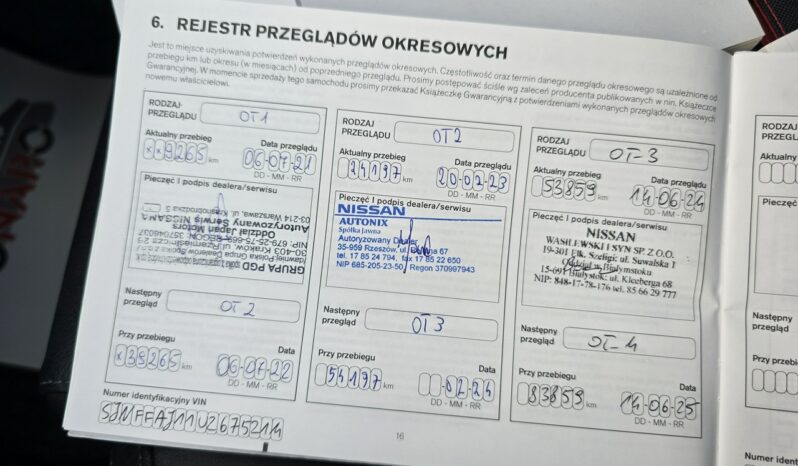 6. REJESTR PRZEGLĄDÓW OKRESOWYCH
Jest to miejsce uzyskiwania potwierdzeń wykonanych przeglądów okresowych. Częstotliwość oraz termin danego przeglądu okresowego są uzależnione od
przebiegu km lub okresu (w miesiącach) od poprzedniego przeglądu. Prosimy postępować ściśle wg zaleceń producenta publikowanych w nin. Książeczce
Gwarancyjnej. W momencie sprzedaży tego samochodu prosimy przekazać Książeczkę Gwarancyjną z potwierdzeniami wykonanych przeglądów okresowych
nowemu właścicielowi.
RODZAJ
PRZEGLĄDU OT1
Aktualny przebieg Data przeglądu
xx9265 km 06-07-21
DD - MM - RR
Pieczęć i podpis dealera/serwisu
GRUPA PGD
Oddział Japan Motors
Autoryzowany Serwis NISSAN
03-214 Warszawa, ul. Krasnobrodzka 5
Następny
przegląd OT2
Przy przebiegu Data
x39265 km 06-07-22
DD - MM - RR
Numer identyfikacyjny VIN
SJNFFAJ11U2675214
RODZAJ
PRZEGLĄDU OT2
Aktualny przebieg Data przeglądu
24197 km 20-02-23
DD - MM - RR
Pieczęć i podpis dealera/serwisu
NISSAN
AUTONIX
Spółka Jawna
Autoryzowany Dealer
35-959 Rzeszów, ul. 67
tel. 17 85 24 794, fax 17 85 22 650
NIP 685-205-23-50, Regon 370997943
Następny
przegląd OT3
Przy przebiegu Data
54197 km -02-24
DD - MM - RR
RODZAJ
PRZEGLĄDU OT-3
Aktualny przebieg Data przeglądu
53859 km 14-06-24
DD - MM - RR
Pieczęć i podpis dealera/serwisu
NISSAN
WASILEWSKI I SYN SP. Z O.O.
19-301 Ełk, Szeligi; ul. Suwalska 1
Oddział w Białymstoku
15-691 Białystok; ul. Kleeberga 68
NIP: 848-17-78-176 tel. 85 66 29 777
Następny
przegląd OT-4
Przy przebiegu Data
83859 km 14-06-25
DD - MM - RR
16
RODZAJ
PRZEGLĄDU
Aktualny przebieg
Pieczęć i
Następny
przegląd
Przy przebiegu
Numer identy